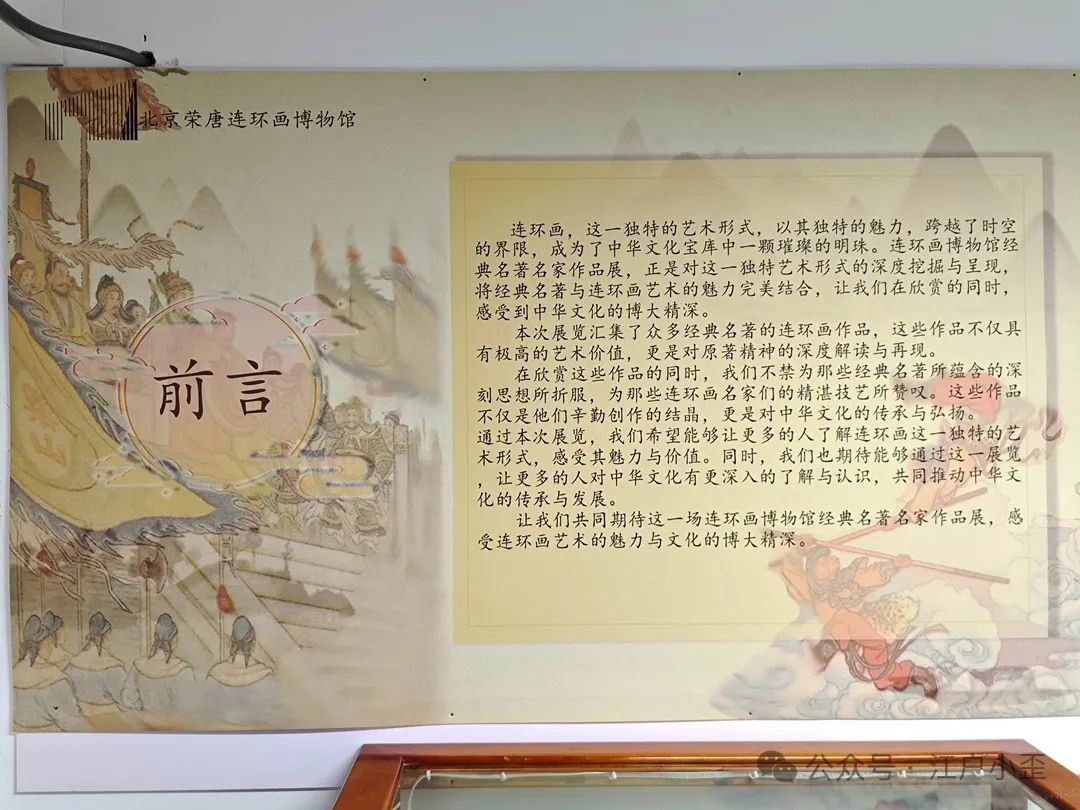 北京荣唐连环画博物馆
前言
连环画，这一独特的艺术形式，以其独特的魅力，跨越了时空
的界限，成为了中华文化宝库中一颗璀璨的明珠。连环画博物馆经
典名著名家作品展，正是对这一独特艺术形式的深度挖掘与呈现，
将经典名著与连环画艺术的魅力完美结合，让我们在欣赏的同时，
感受到中华文化的博大精深。
本次展览汇集了众多经典名著的连环画作品，这些作品不仅具
有极高的艺术价值，更是对原著精神的深度解读与再现。
在欣赏这些作品的同时，我们不禁为那些经典名著所蕴含的深
刻思想所折服，为那些连环画名家们的精湛技艺所赞叹。这些作品
不仅是他们辛勤创作的结晶，更是对中华文化的传承与弘扬。
通过本次展览，我们希望能够让更多的人了解连环画这一独特的艺
术形式，感受其魅力与价值。同时，我们也期待能够通过这一展览
，让更多的人对中华文化有更深入的了解与认识，共同推动中华文
化的传承与发展。
让我们共同期待这一场连环画博物馆经典名著名家作品展，感
受连环画艺术的魅力与文化的博大精深。
公众号·江户小歪